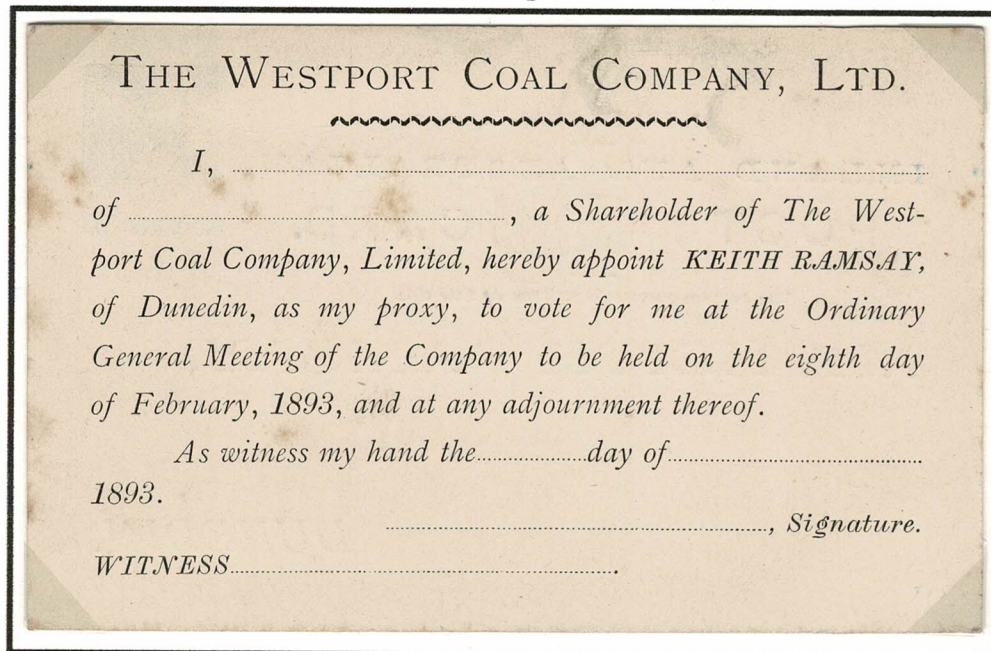 THE WESTPORT COAL COMPANY, LTD.
I, ........................................
of ........................................, a Shareholder of The West-
port Coal Company, Limited, hereby appoint KEITH RAMSAY,
of Dunedin, as my proxy, to vote for me at the Ordinary
General Meeting of the Company to be held on the eighth day
of February, 1893, and at any adjournment thereof.
As witness my hand the....................day of........................................
1893.
........................................, Signature.
WITNESS.........................................